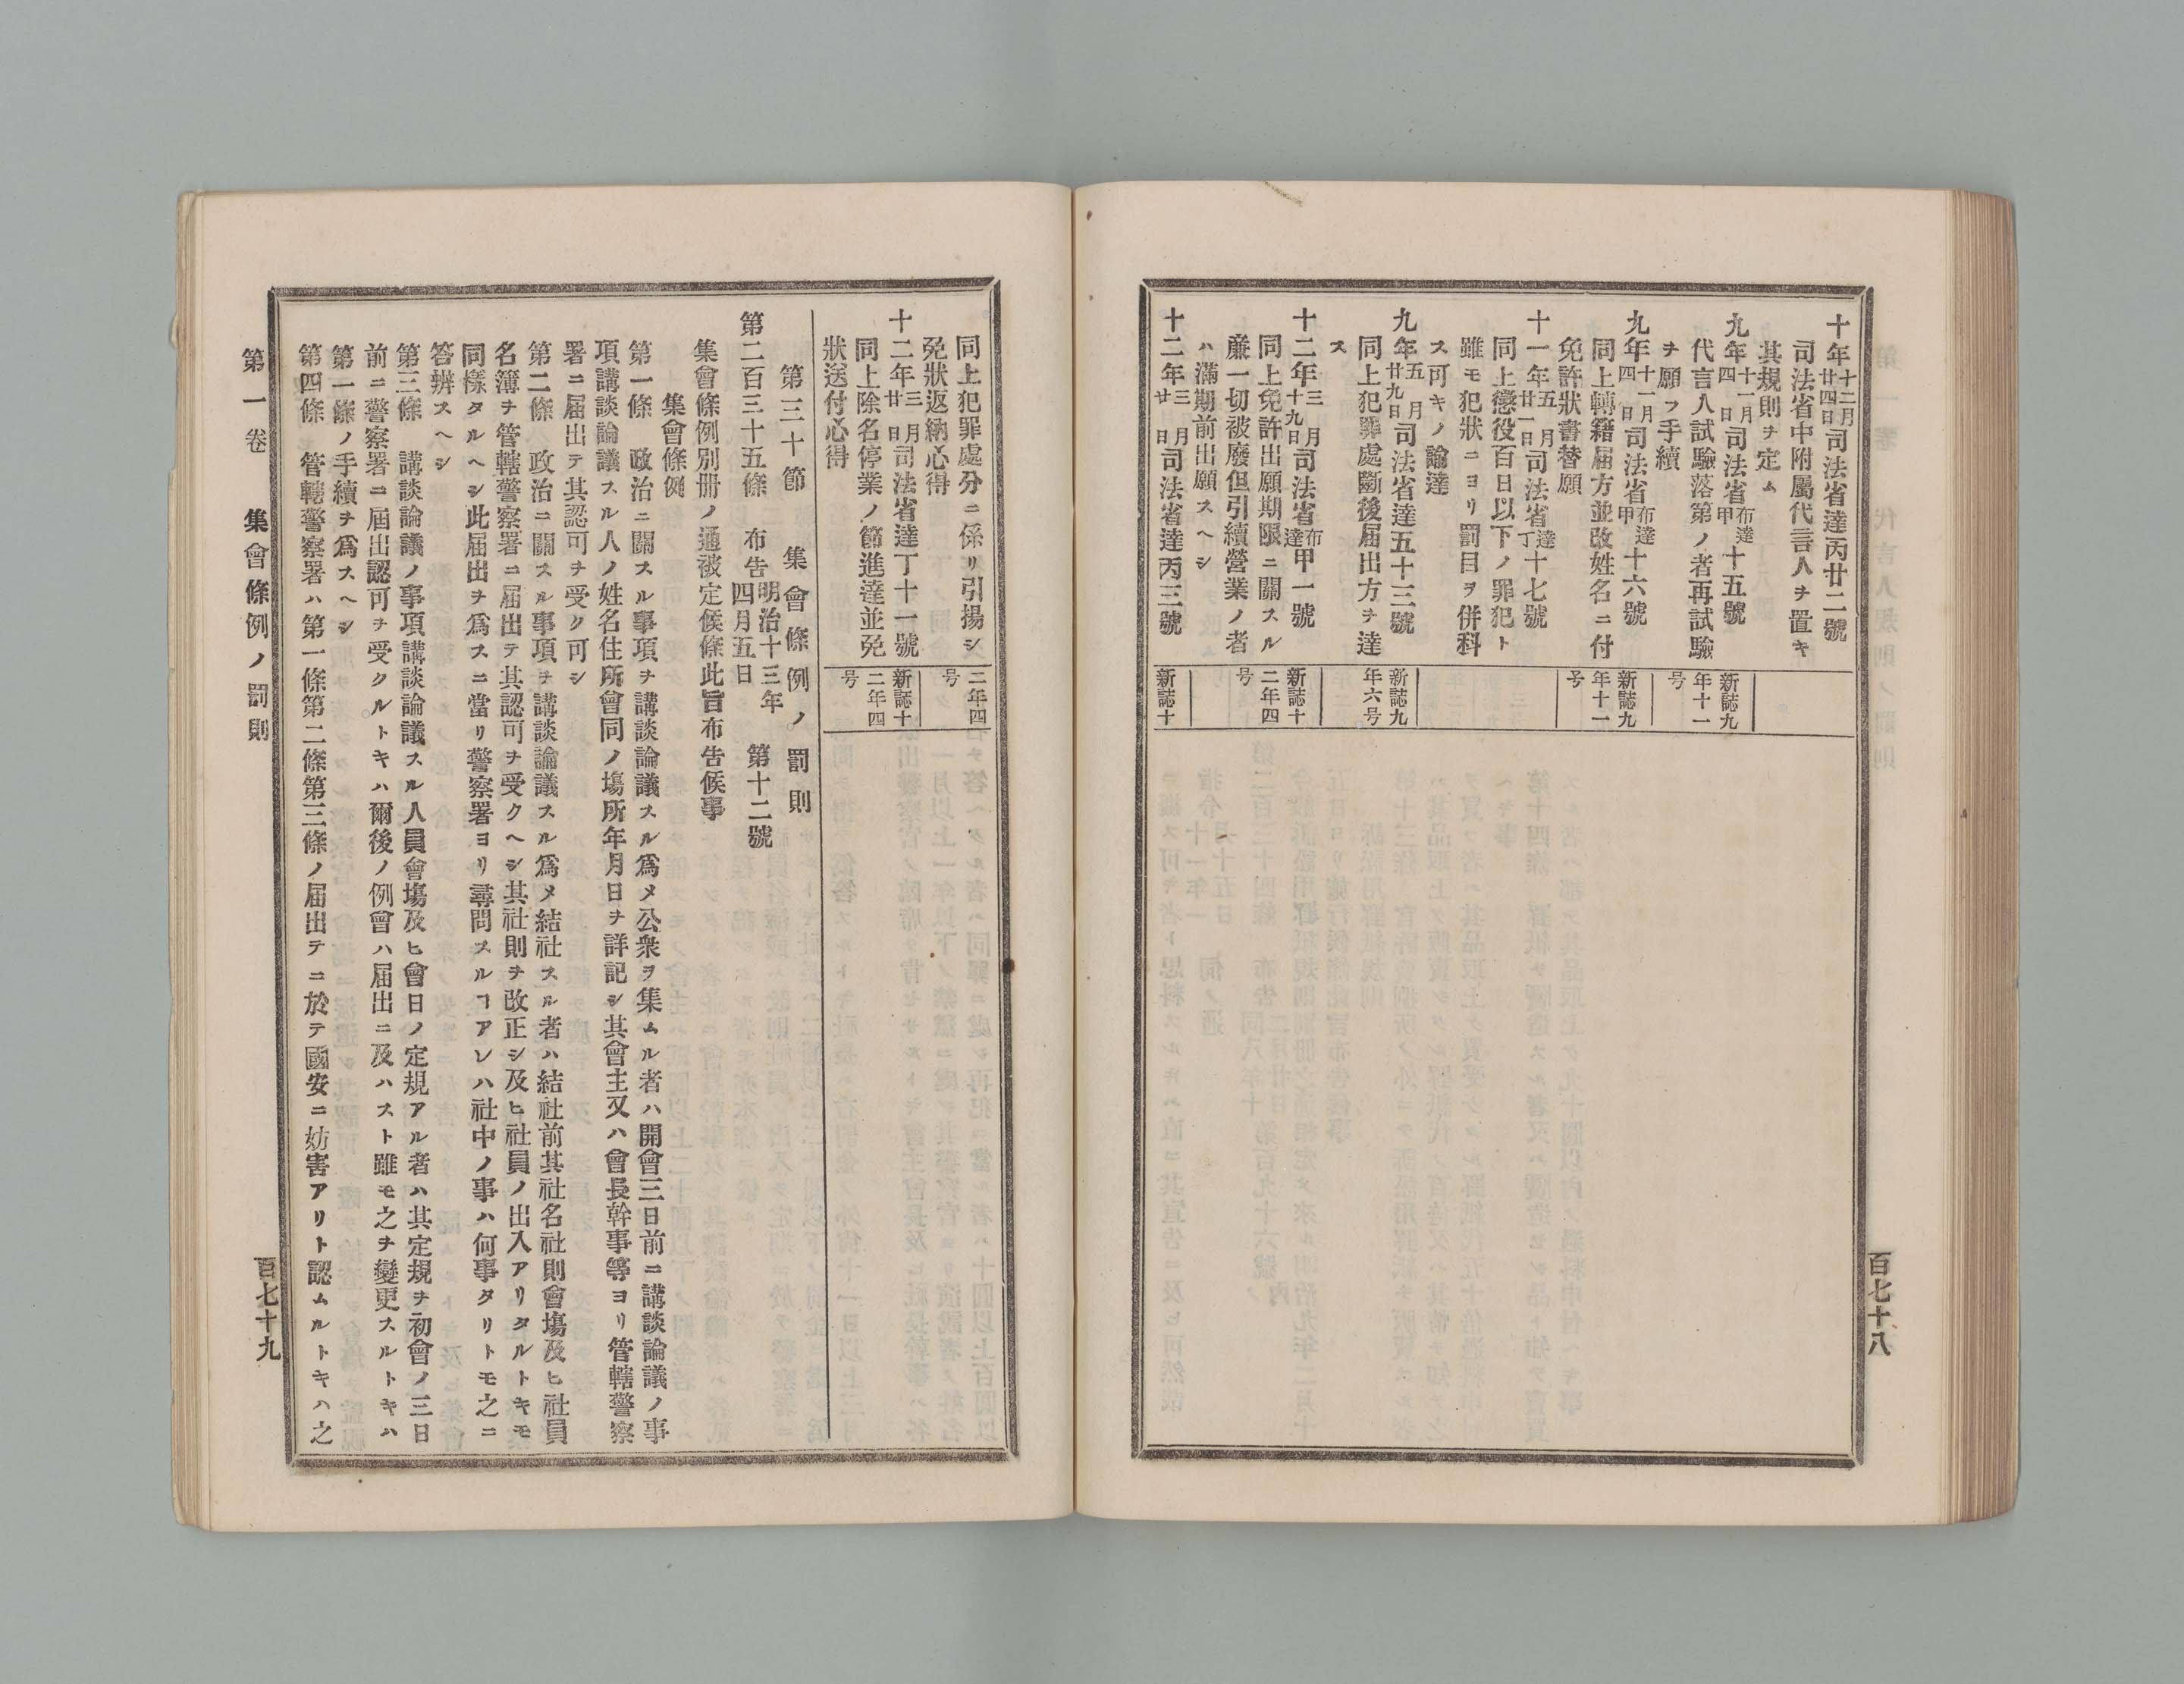 十年十二月廿四日司法省達丙廿二號
司法省中附屬代言人ヲ置キ
其規則ヲ定ム
九年十一月四日司法省布達甲十五號
代言人試驗落第ノ者再試驗
ヲ願フ手續
新誌九
年十一
号
九年十一月四日司法省布達甲十六號
同上轉籍届方並改姓名ニ付
免許狀書替願
新誌九
年十一
号
十一年五月廿一日司法省達丁十七號
同上懲役百日以下ノ罪犯ト
雖モ犯狀ニヨリ罰目ヲ併科
ス可キノ諭達
九年五月廿九日司法省達五十三號
同上犯罪處斷後届出方ヲ達
ス
新誌九
年六号
十二年三月十九日司法省布達甲一號
同上免許出願期限ニ關スル
廉一切被廢但引續營業ノ者
ハ滿期前出願スヘシ
新誌十
二年四
号
十二年三月廿日司法省達丙三號
新誌十
百七十八
同上犯罪處分ニ係リ引揚シ
免狀返納心得
二年四
号
十二年三月廿日司法省達丁十一號
同上除名停業ノ節進達並免
狀送付心得
新誌十
二年四
号
第三十節 集會條例ノ罰則
第二百三十五條 布告明治十三年四月五日 第十二號
集會條例別冊ノ通被定候條此旨布告候事
集會條例
第一條 政治ニ關スル事項ヲ講談論議スル爲メ公衆ヲ集ムル者ハ開會三日前ニ講談論議ノ事
項講談論議スル人ノ姓名住所會同ノ塲所年月日ヲ詳記シ其會主又ハ會長幹事等ヨリ管轄警察
署ニ届出テ其認可ヲ受ク可シ
第二條 政治ニ關スル事項ヲ講談論議スル爲メ結社スル者ハ結社前其社名社則會塲及ヒ社員
名簿ヲ管轄警察署ニ届出テ其認可ヲ受クヘシ其社則ヲ改正シ及ヒ社員ノ出入アリタルトキモ
同樣タルヘシ此届出ヲ爲スニ當リ警察署ヨリ尋問スルヿアレハ社中ノ事ハ何事タリトモ之ニ
答辨スヘシ
第三條 講談論議ノ事項講談論議スル人員會塲及ヒ會日ノ定規アル者ハ其定規ヲ初會ノ三日
前ニ警察署ニ屆出認可ヲ受クルトキハ爾後ノ例會ハ届出ニ及ハスト雖モ之ヲ變更スルトキハ
第一條ノ手續ヲ爲スヘシ
第四條 管轄警察署ハ第一條第二條第三條ノ届出テニ於テ國安ニ妨害アリト認ムルトキハ之
第一卷 集會條例ノ罰則
百七十九